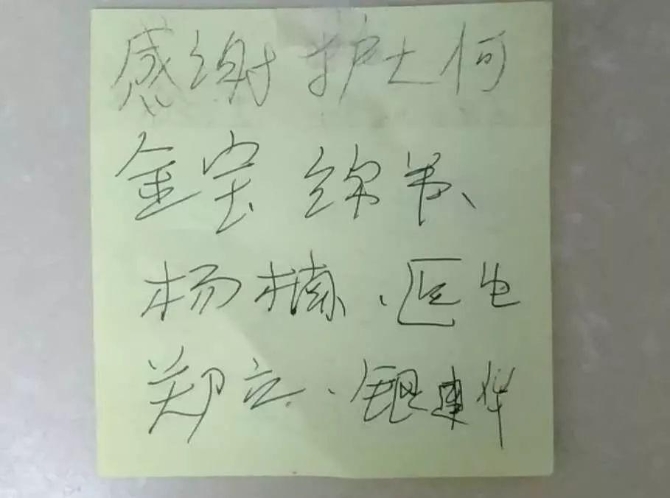 感谢护士何
金宝
杨楠、医生
郑立、银建华